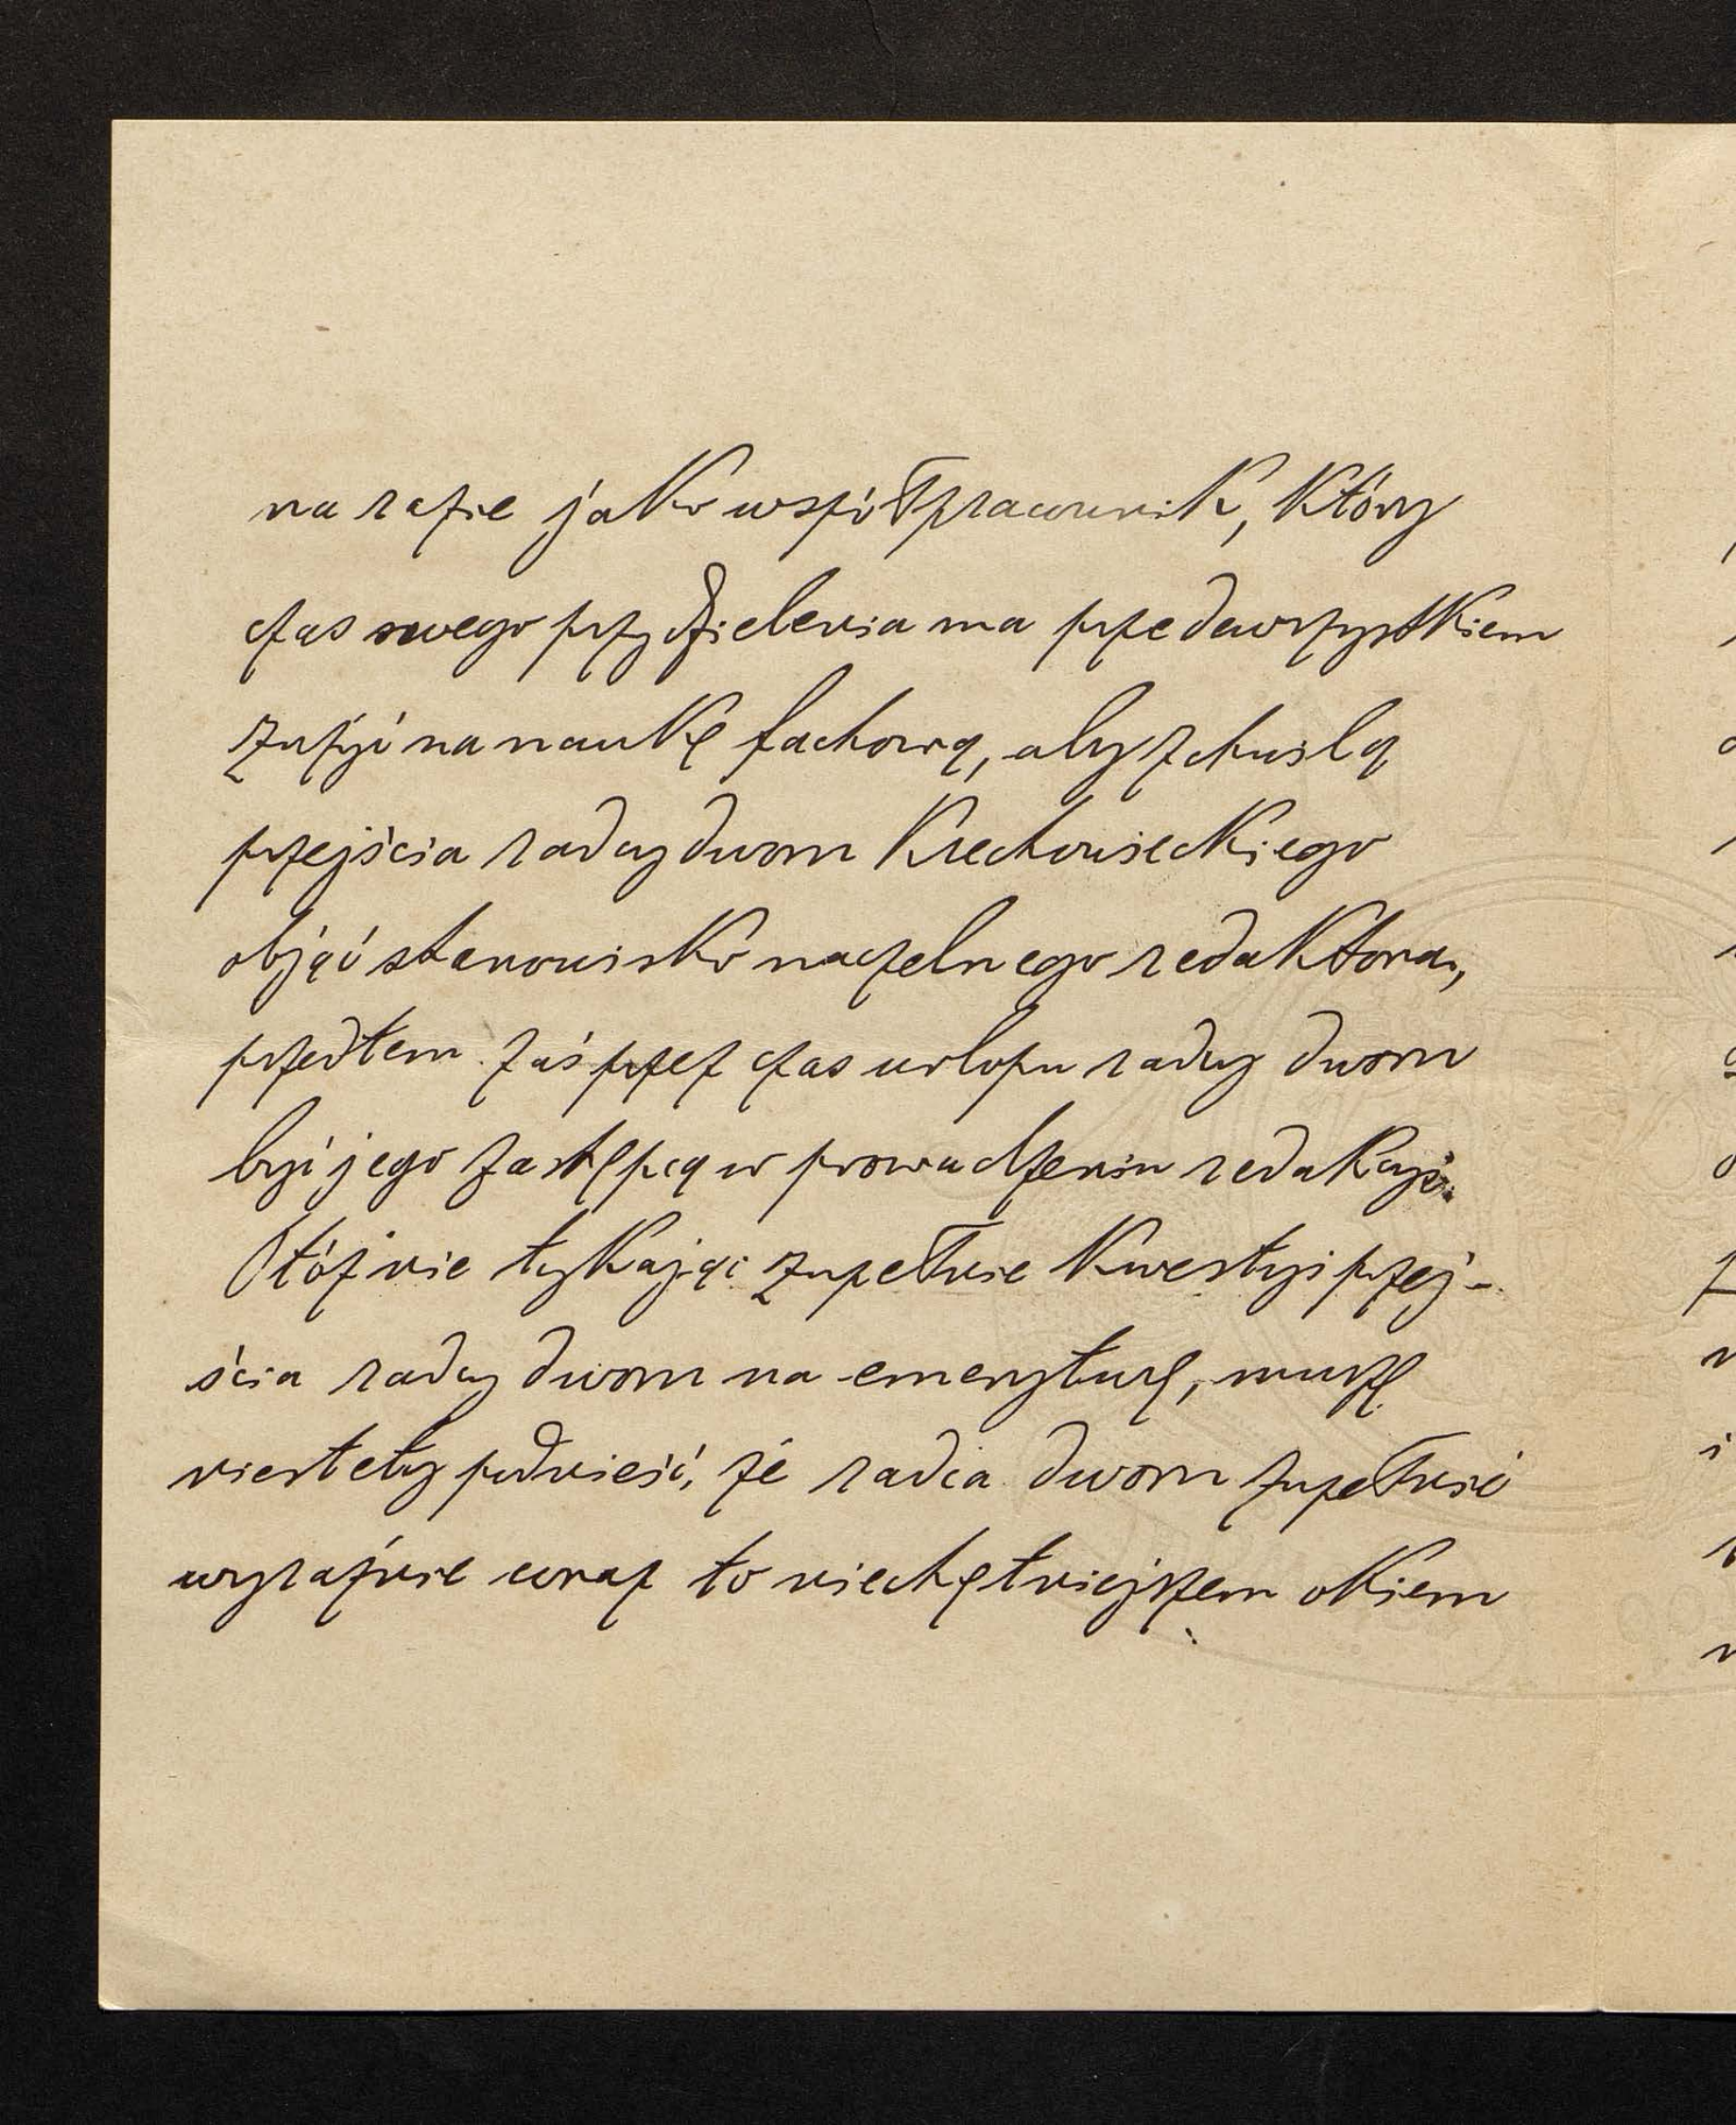 na razie jako współpracownik, który
czas swego przydzielenia ma przedewszystkiem
zużyć na naukę fachową, aby z chwilą
przejścia radcy dworu Krechowieckiego
objąć stanowisko naczelnego redaktora,
przedtem zaś przez czas urlopu radcy dworu
być jego zastępcą w prowadzeniu redakcyi.
Otóż nie tykając zupełnie kwestyi przej-
ścia radcy dworu na emeryturę, muszę
niestety podnieść, że radca dworu zupełnie
wyraźnie coraz to niechętniejszem okiem